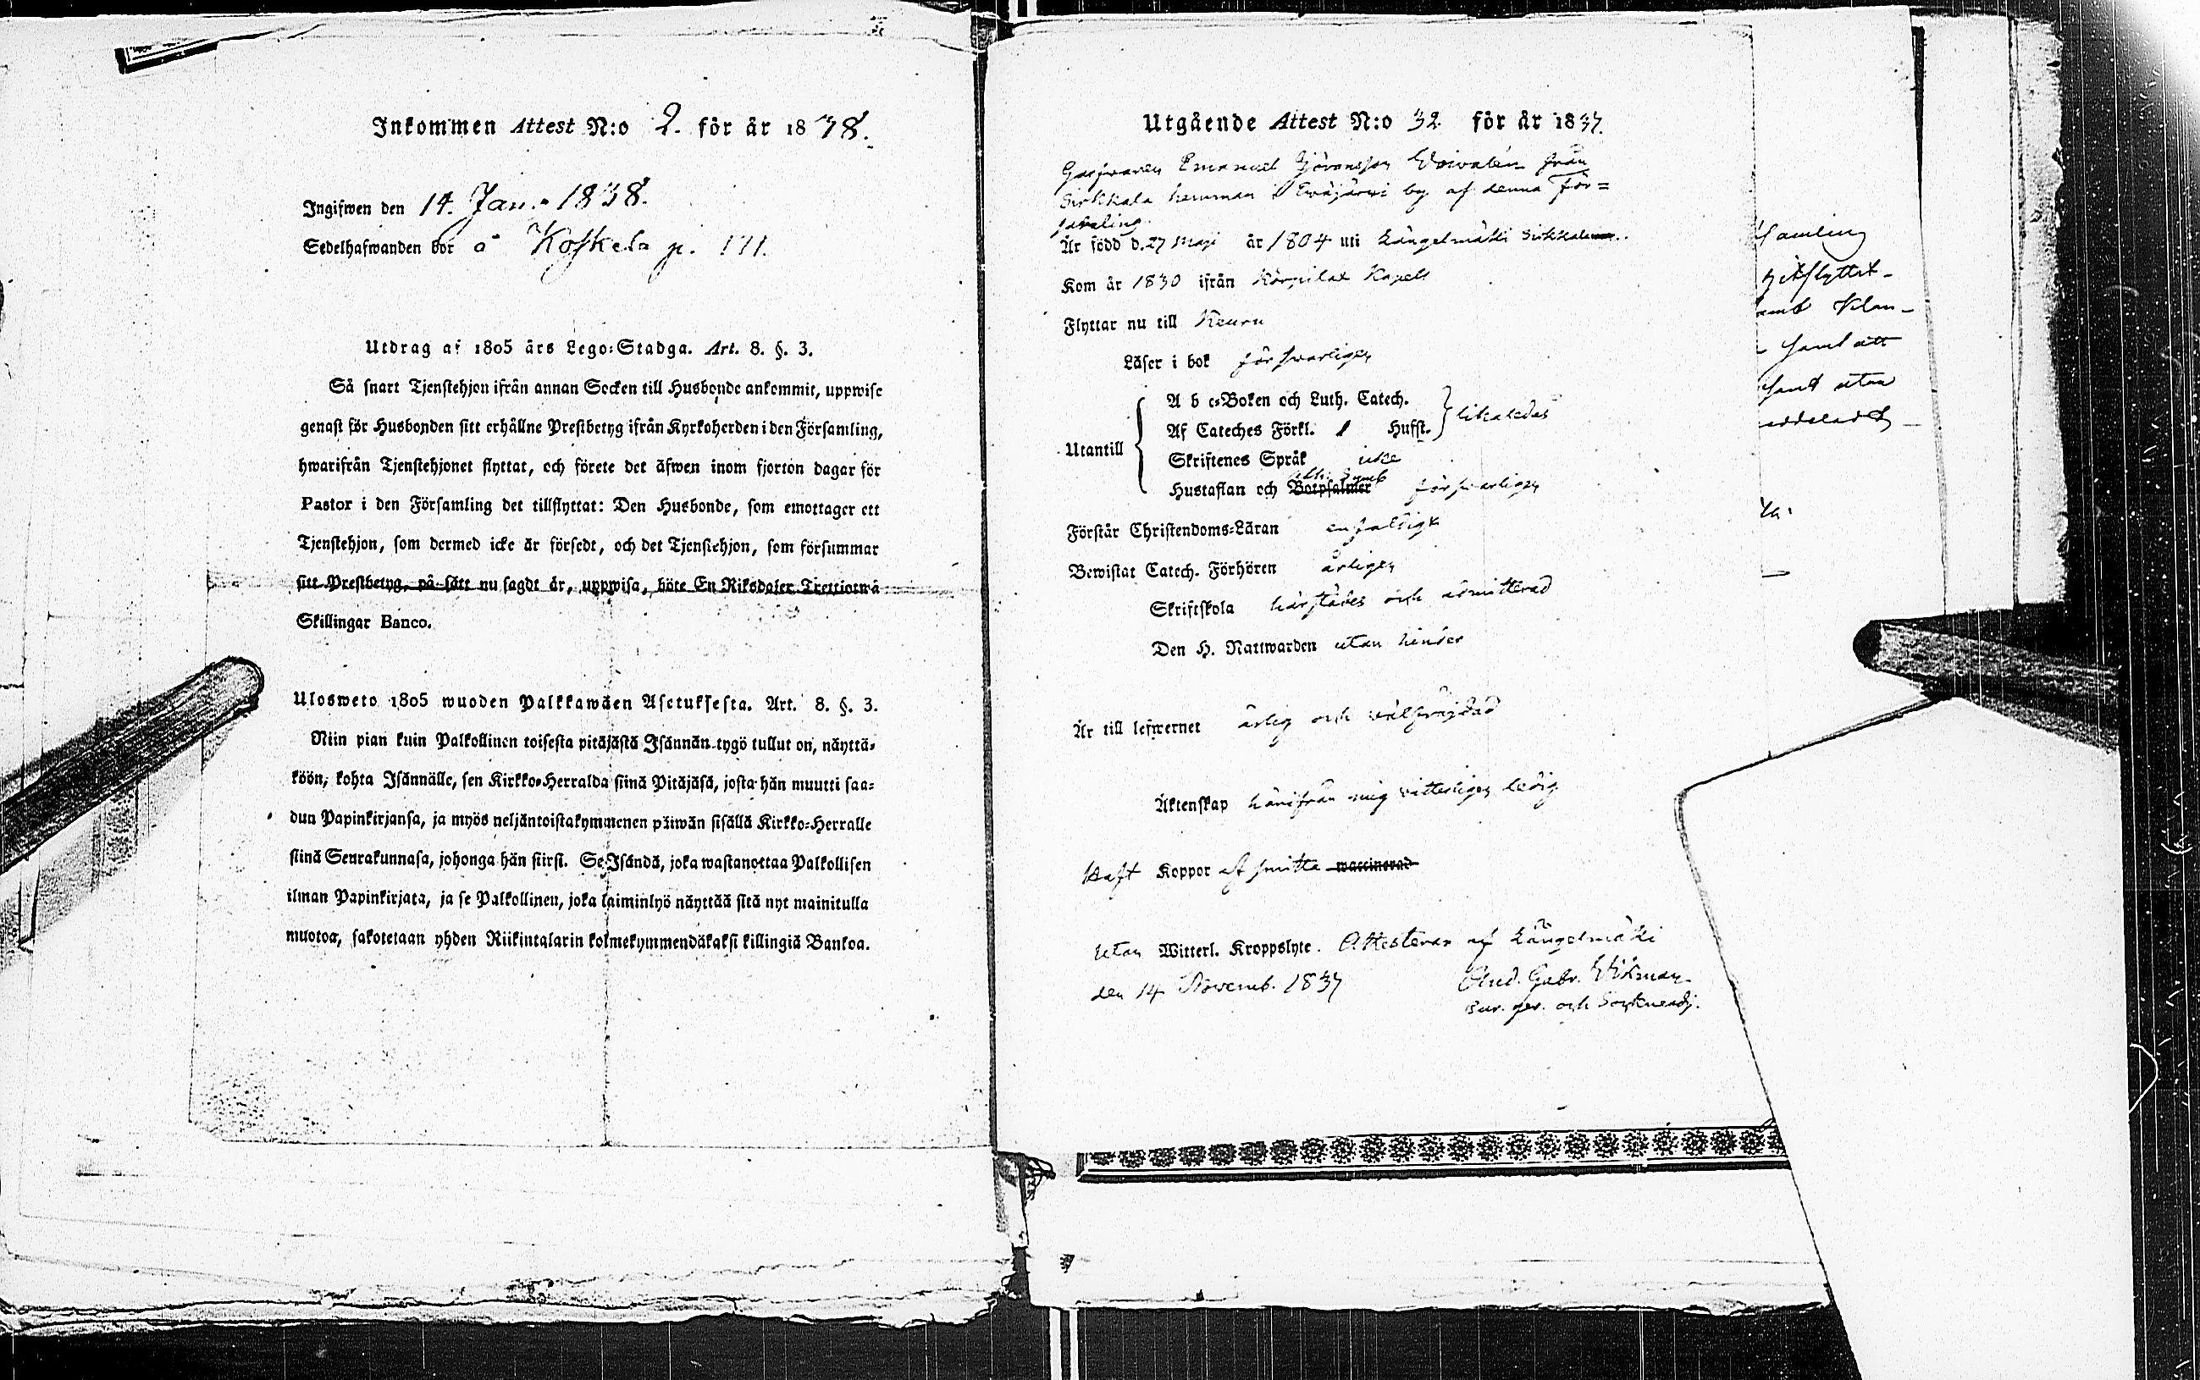 Inkommen Attest N:o 2. för år 1838.
Ingifwen den 14. Jan. 1838.
Sedelhafwanden bor å Koskela p. 171.
Utdrag af 1805 års Lego-Stadga. Art. 8. §. 3.
Så snart Tjenstehjon ifrån annan Socken till Husbonde ankommit, uppwise
genast för Husbonden sitt erhållne Prestbetyg ifrån Kyrkoherden i den Församling,
hwarifrån Tjenstehjonet flyttat, och förete det äfwen inom fjorton dagar för
Pastor i den Församling det tillflyttat: Den Husbonde, som emottager ett
Tjenstehjon, som dermed icke är försedt, och det Tjenstehjon, som försummar
sitt Prestbetyg, på sätt nu sagdt är, uppwisa, böte En Riksdaler Trettiotwå
Skillingar Banco.
Ulosweto 1805 wuoden Palkkawäen Asetuksesta. Art. 8. §. 3.
Niin pian kuin Palkollinen toisesta pitäjästä Isännän tygö tullut on, näyttä-
köön, kohta Isännälle, sen Kirkko-Herralda siinä Pitäjäsä, josta hän muutti saa-
dun Papinkirjansa, ja myös neljäntoistakymmenen päiwän sisällä Kirkko-Herralle
siinä Seurakunnasa, johonga hän siirsi. Se Isändä, joka wastanottaa Palkollisen
ilman Papinkirjata, ja se Palkollinen, joka laiminlyö näyttää sitä nyt mainitulla
muotoa, sakotetaan yhden Riikintalarin kolmekymmendäkaksi killingiä Bankoa.
Utgående Attest N:o 32 för år 1837.
Emanuel Göransson från
Sirkkala hemman i Eväjärvi by af denna För-
samling
Är född d. 27 Maji år 1804 uti Längelmäki
Kom år 1830 ifrån Korpilax Kapell
Flyttar nu till Keuru
Läser i bok förswarligen
A b c-Boken och Luth. Catech.
Utantill Af Cateches Förkl. Hufst. likaledes
Skriftenes Språk icke
Hustaflan och Botpsalmer Ath. Symb förswarligen
Förstår Christendoms-Läran enfaldigt
Bewistat Catech. Förhören årligen
Skriftskola härstädes och admitterad
Den H. Nattwarden utan hinder
Är till lefwernet ärlig och wälfräjdad
Äktenskap härifrån mig vitterligen ledig
Haft Koppor af smitta waccinerad
Utan Witterl. Kroppslyte. Attesteras af Längelmäki
den 14 Novemb. 1837 And. Gabr. Widman
samling
samt att
samt utan